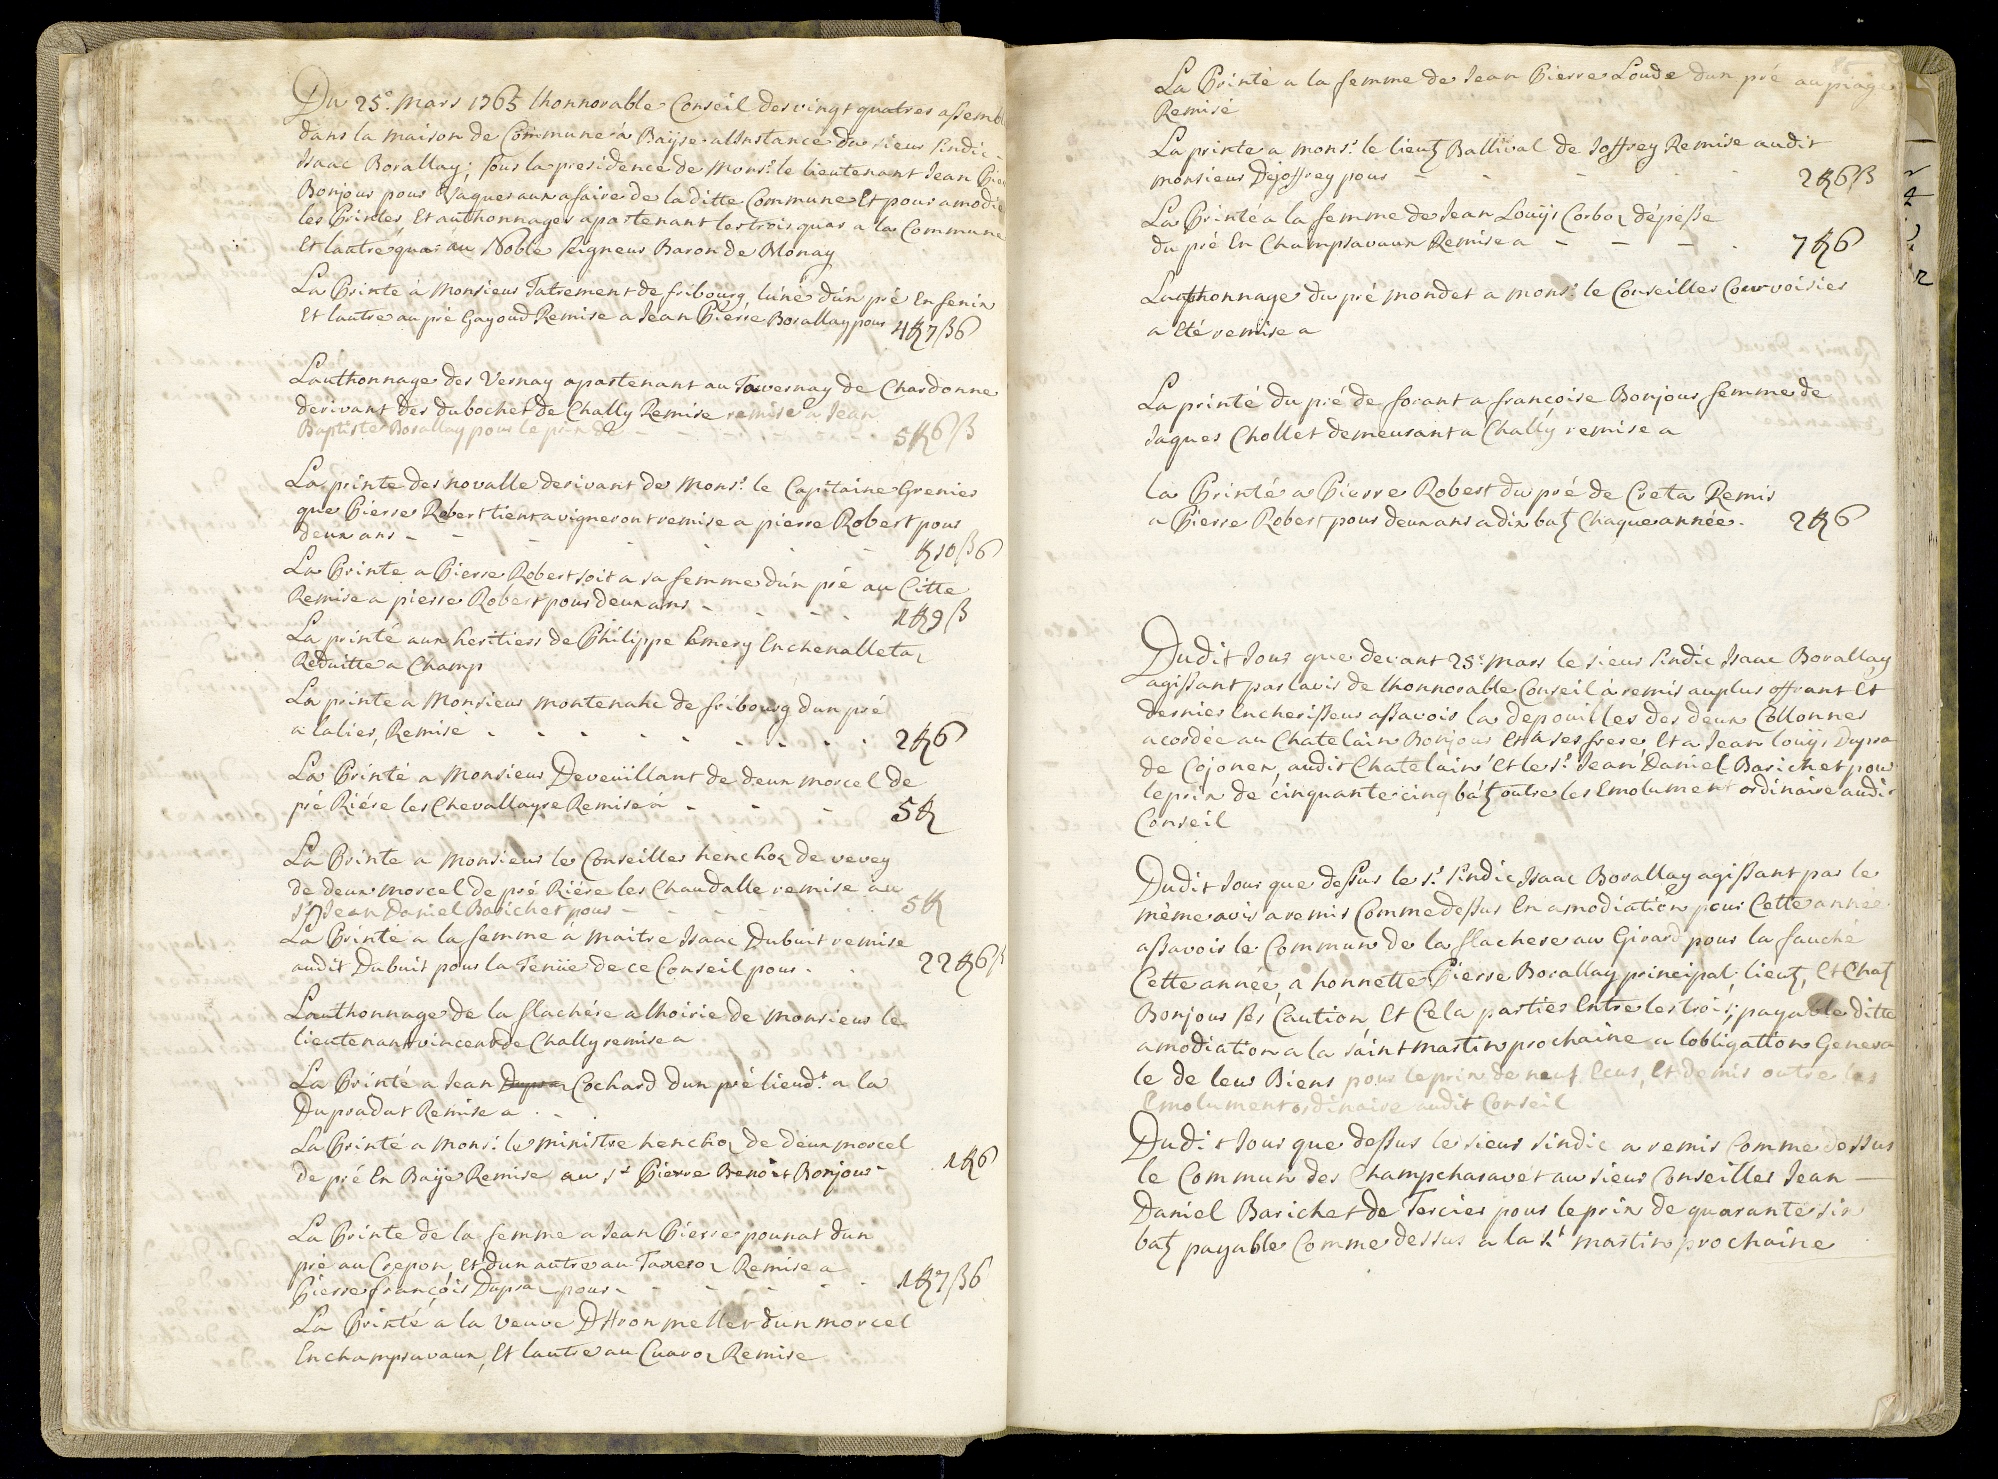 Du 25e. Mars 1765 lhonnorable Conseil des vingt quatres assemb
dans la maison de Commune à Baÿse alinstance du sieur sindic
Isaac Borallay; sous la presidence de Monsr. le lieutenant Jean Pier
Bonjour pour Vaguer aux afaires de la ditte Commune Et pour amodie
les Printes, Et authonnages apartenant les trois quar a la Commune
Et lautre quar au Noble seigneur Baron de Blonay
La Printe à Monsieur Tatrement de fribourg, lune dun pré En fenix
Et lautre au pré Gayoud Remise a Jean Pierre Borallay pour 4 ℔ 7 ß 6
Lauthonnage des Vernay apartenant au Tavernay de Chardonne
derivant des dubochet de Chally Remise remise a Jean
Baptiste Borallay pour le prix de - - 5 ℔ 6 ß
La printe des novalle derivant de Monsr. le Capitaine Grenier
que Pierre Robert tient a vigneront remise a pierre Robert pour
deux ans - - - - - ℔ 10 ß 6
La Printe a Pierre Robert soit a sa femme dun pré au Citte
Remise a pierre Robert pour deux ans - - - 1 ℔ 9 ß
La printé aux heritiers de Philippe Emery Enchenalletaz
Reduitte a Champ
La printe a Monsieur montenahc de fribourg dun pré
a lalier, Remise - - - - - - 2 ℔ 6
La Printé a Monsieur Deveüillant de deux morcel de
pré Riére les Chevallayre Remise à - - - 5 ℔
La Printe a Monsieur le Conseiller henchoz de vevey
de deux morcel de pré Riére les Chaudalle remise au
sr. Jean Daniel Barichet pour - - - - 5 ℔
La Printé a la femme à maitre Isaac Dubuit remise
audit Dubuit pour la Tenüe de ce Conseil pour - - 22 ℔ 6 ß
Lauthonnage de la flachére a lhoirie de Monsieur le
lieutenant vincent de Chally remise a
La Printé a Jean Dupraz Cochard dun pré lieudt. a la
Dupradat Remise a - -
La Printé a Monsr. le ministre henchoz de deux morcel
de pré En Baÿe Remise au sr. Pierre Benoit Bonjour - 1 ℔ 6
La Printe de la femme a Jean Pierre pounat dun
pré au Crepon, Et dun autre au Taxeroz Remise a
Pierre françois Dupraz pour - - - - 1 ℔ 7 ß 6
La Printé à la veuve DAron mellet dun morcel
Enchampsavaux, Et lautre au Cuaroz Remise
La Printé a la femme de Jean Pierre Loude dun pré au piage
Remise
La printe a monsr. le lieutz. Ballival de Joffrey Remise audit
monsieur Dejoffrey pour - - - - - 2 ℔ 6 ß
La Printé a la femme de Jean Louÿs Corboz dépesse
du pré En Champsavaux Remise a - - - 7 ℔ 6
Lauthonnage du pré mondet a monsr. le Conseiller Courvoisier
a Eté remise a
La printé du pré de forant a françoise Bonjour femme de
Jaques Chollet demeurant a Chally remise a
la Printé a Pierre Robert du pré de Creta Remis
a Pierre Robert pour deux ans a dix batz Chaque année - 2 ℔ 6
Dudit Jour que devant 25e. Mars le sieur sindic Isaac Borallay
agissant par lavis de lhonnorable Conseil à remis au plus offrant Et
dernier Encherisseur assavoir la depouilles des deux Collonnes
acordée au Chatelain Bonjour Et à ses frere, Et a Jean louÿs Dupra
de Cojonex, audit Chatelain Et le sr. Jean Daniel Barichet pour
le prix de cinquante cinq batz outre les Emolument ordinaire audit
Conseil
Dudit Jour que dessus le sr. sindic Isaac Borallay agissant par le
même avis a remis Comme dessus En amodiation pour Cette année
assavoir le Commun de la flachere au Girard pour la fauche
Cette année, a honnette Pierre Borallay principal; lieutz, Et Chatz
Bonjour ses Caution, Et Cela parties Entre les trois; payable ditte
amodiation a la saint martin prochaine a lobligation Genera
le de leur Biens pour le prix de neuf Ecus, Et demis outre les
Emolument ordinaire audit Conseil
Dudit Jour que dessus le sieur sindic a remis Comme dessus
le Commun des Champcharavet au sieur Conseiller Jean
Daniel Barichet de Tercier pour le prix de quarante six
batz payable Comme dessus a la st. martin prochaine